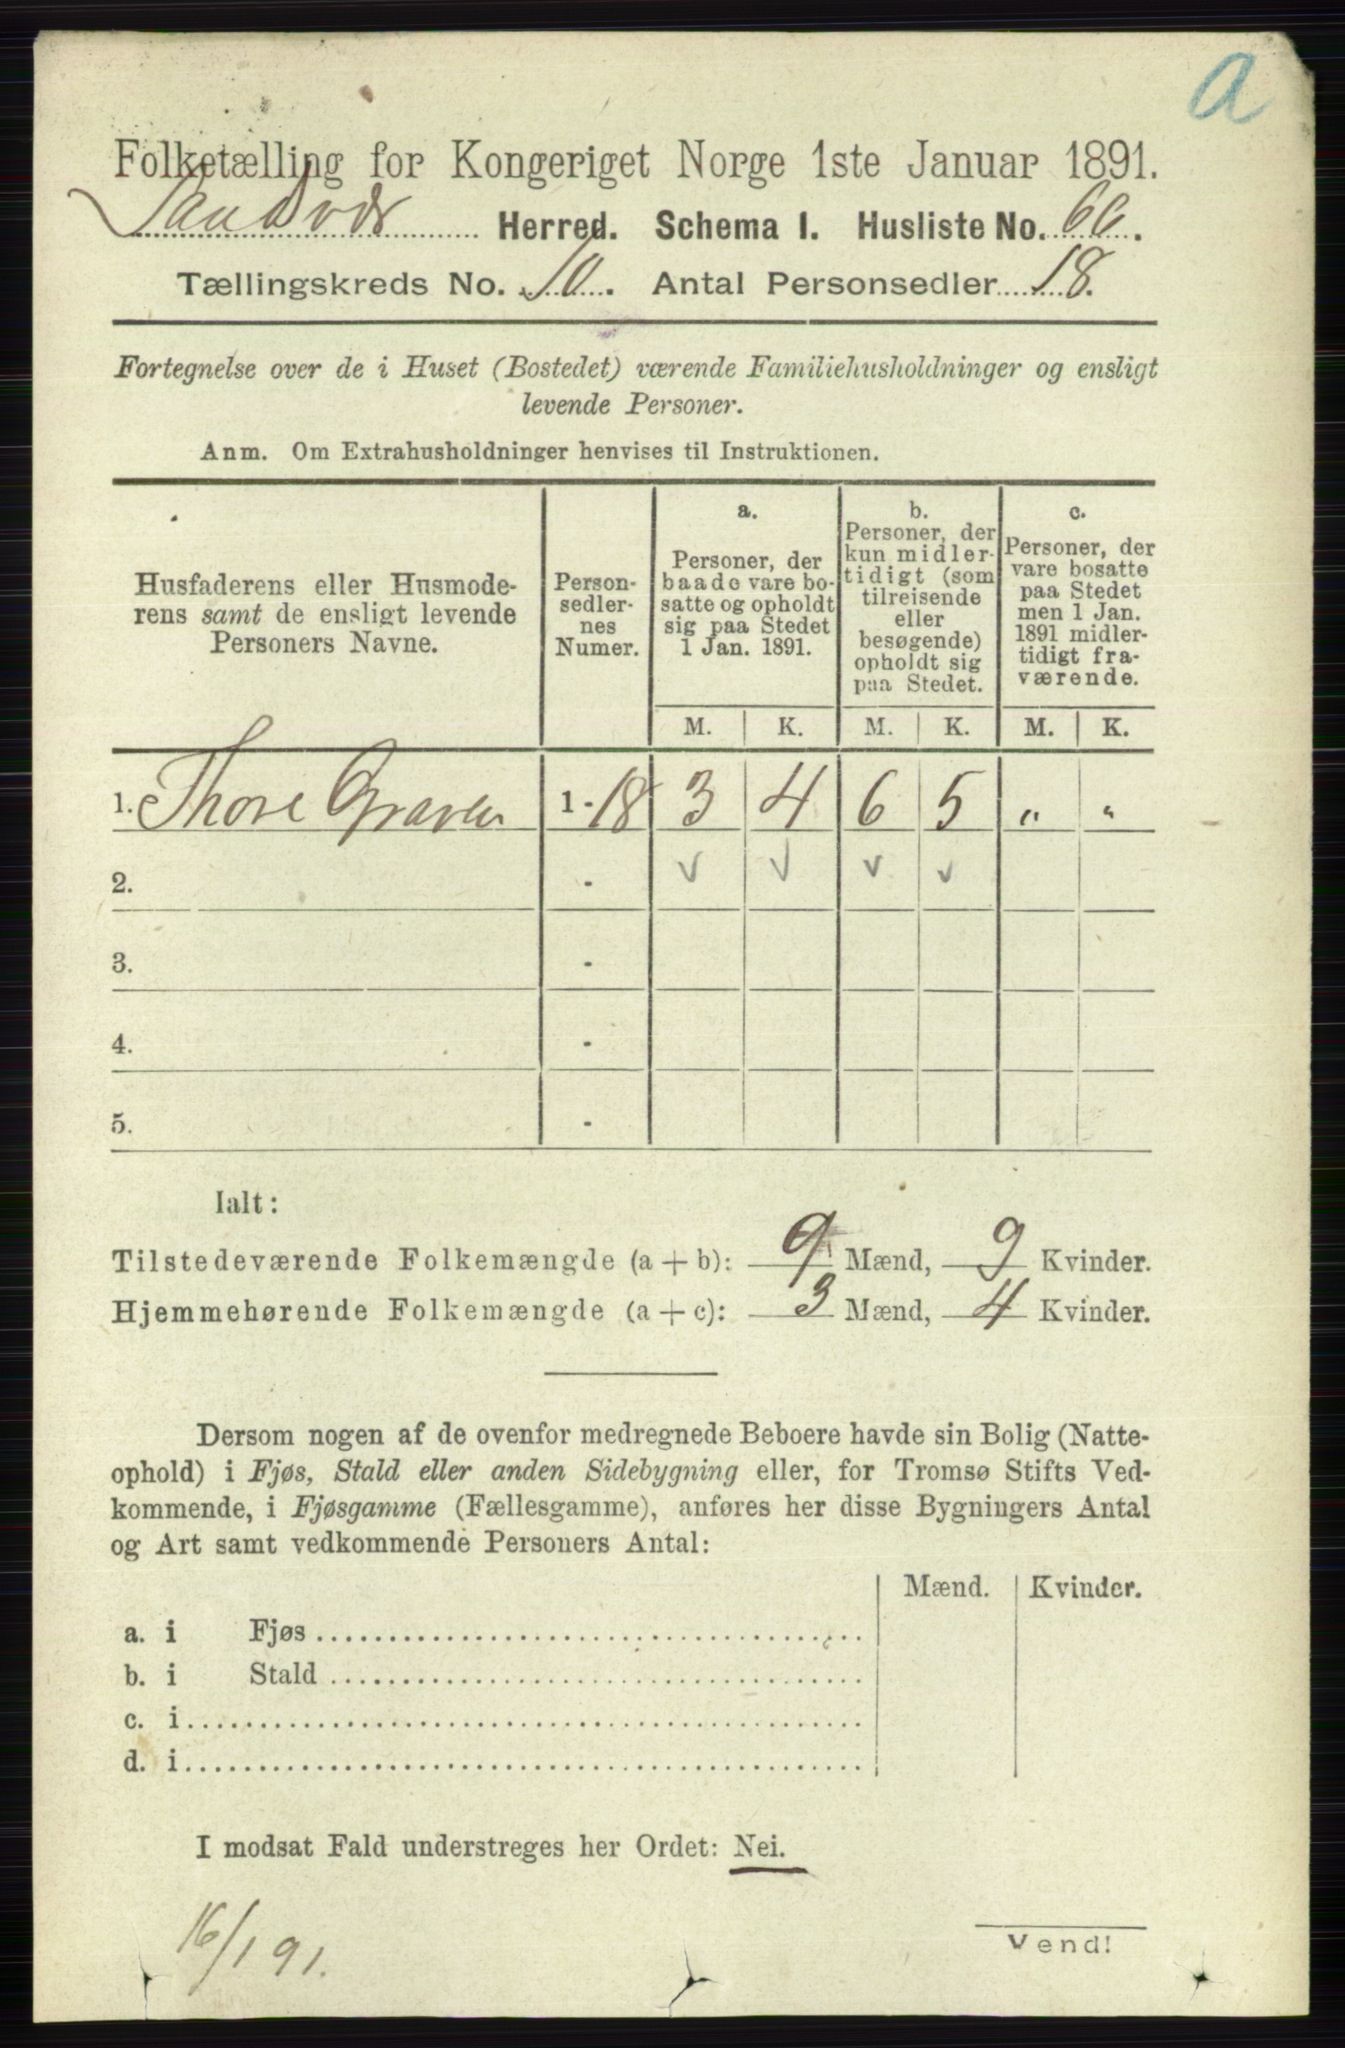 a
Folketælling for Kongeriget Norge 1ste Januar 1891.
Sandsvær Herred. Schema I. Husliste No. 66.
Tællingskreds No. 10. Antal Personsedler 18.
Fortegnelse over de i Huset (Bostedet) værende Familiehusholdninger og ensligt
levende Personer.
Anm. Om Extrahusholdninger henvises til Instruktionen.
Husfaderens eller Husmode-
rens samt de ensligt levende
Personers Navne.
Person-
sedler-
nes
Numer.
a.
Personer, der
baade vare bo-
satte og opholdt
sig paa Stedet
1 Jan. 1891.
b.
Personer, der
kun midler-
tidigt (som
tilreisende
eller
besøgende)
opholdt sig
paa Stedet.
c.
Personer, der
vare bosatte
paa Stedet
men 1 Jan.
1891 midler-
tidigt fra-
værende.
M. K. M. K. M. K.
1. Thore Graven 1 - 18 3 4 6 5 " "
2. - ✓ ✓ ✓ ✓
3. -
4. -
5. -
Ialt:
Tilstedeværende Folkemængde (a + b): 9 Mænd, 9 Kvinder.
Hjemmehørende Folkemængde (a + c): 3 Mænd, 4 Kvinder.
Dersom nogen af de ovenfor medregnede Beboere havde sin Bolig (Natte-
ophold) i Fjøs, Stald eller anden Sidebygning eller, for Tromsø Stifts Ved-
kommende, i Fjøsgamme (Fællesgamme), anføres her disse Bygningers Antal
og Art samt vedkommende Personers Antal:
Mænd. Kvinder.
a. i Fjøs
b. i Stald
c. i
d. i
I modsat Fald understreges her Ordet: Nei.
16/1 91.
Vend!